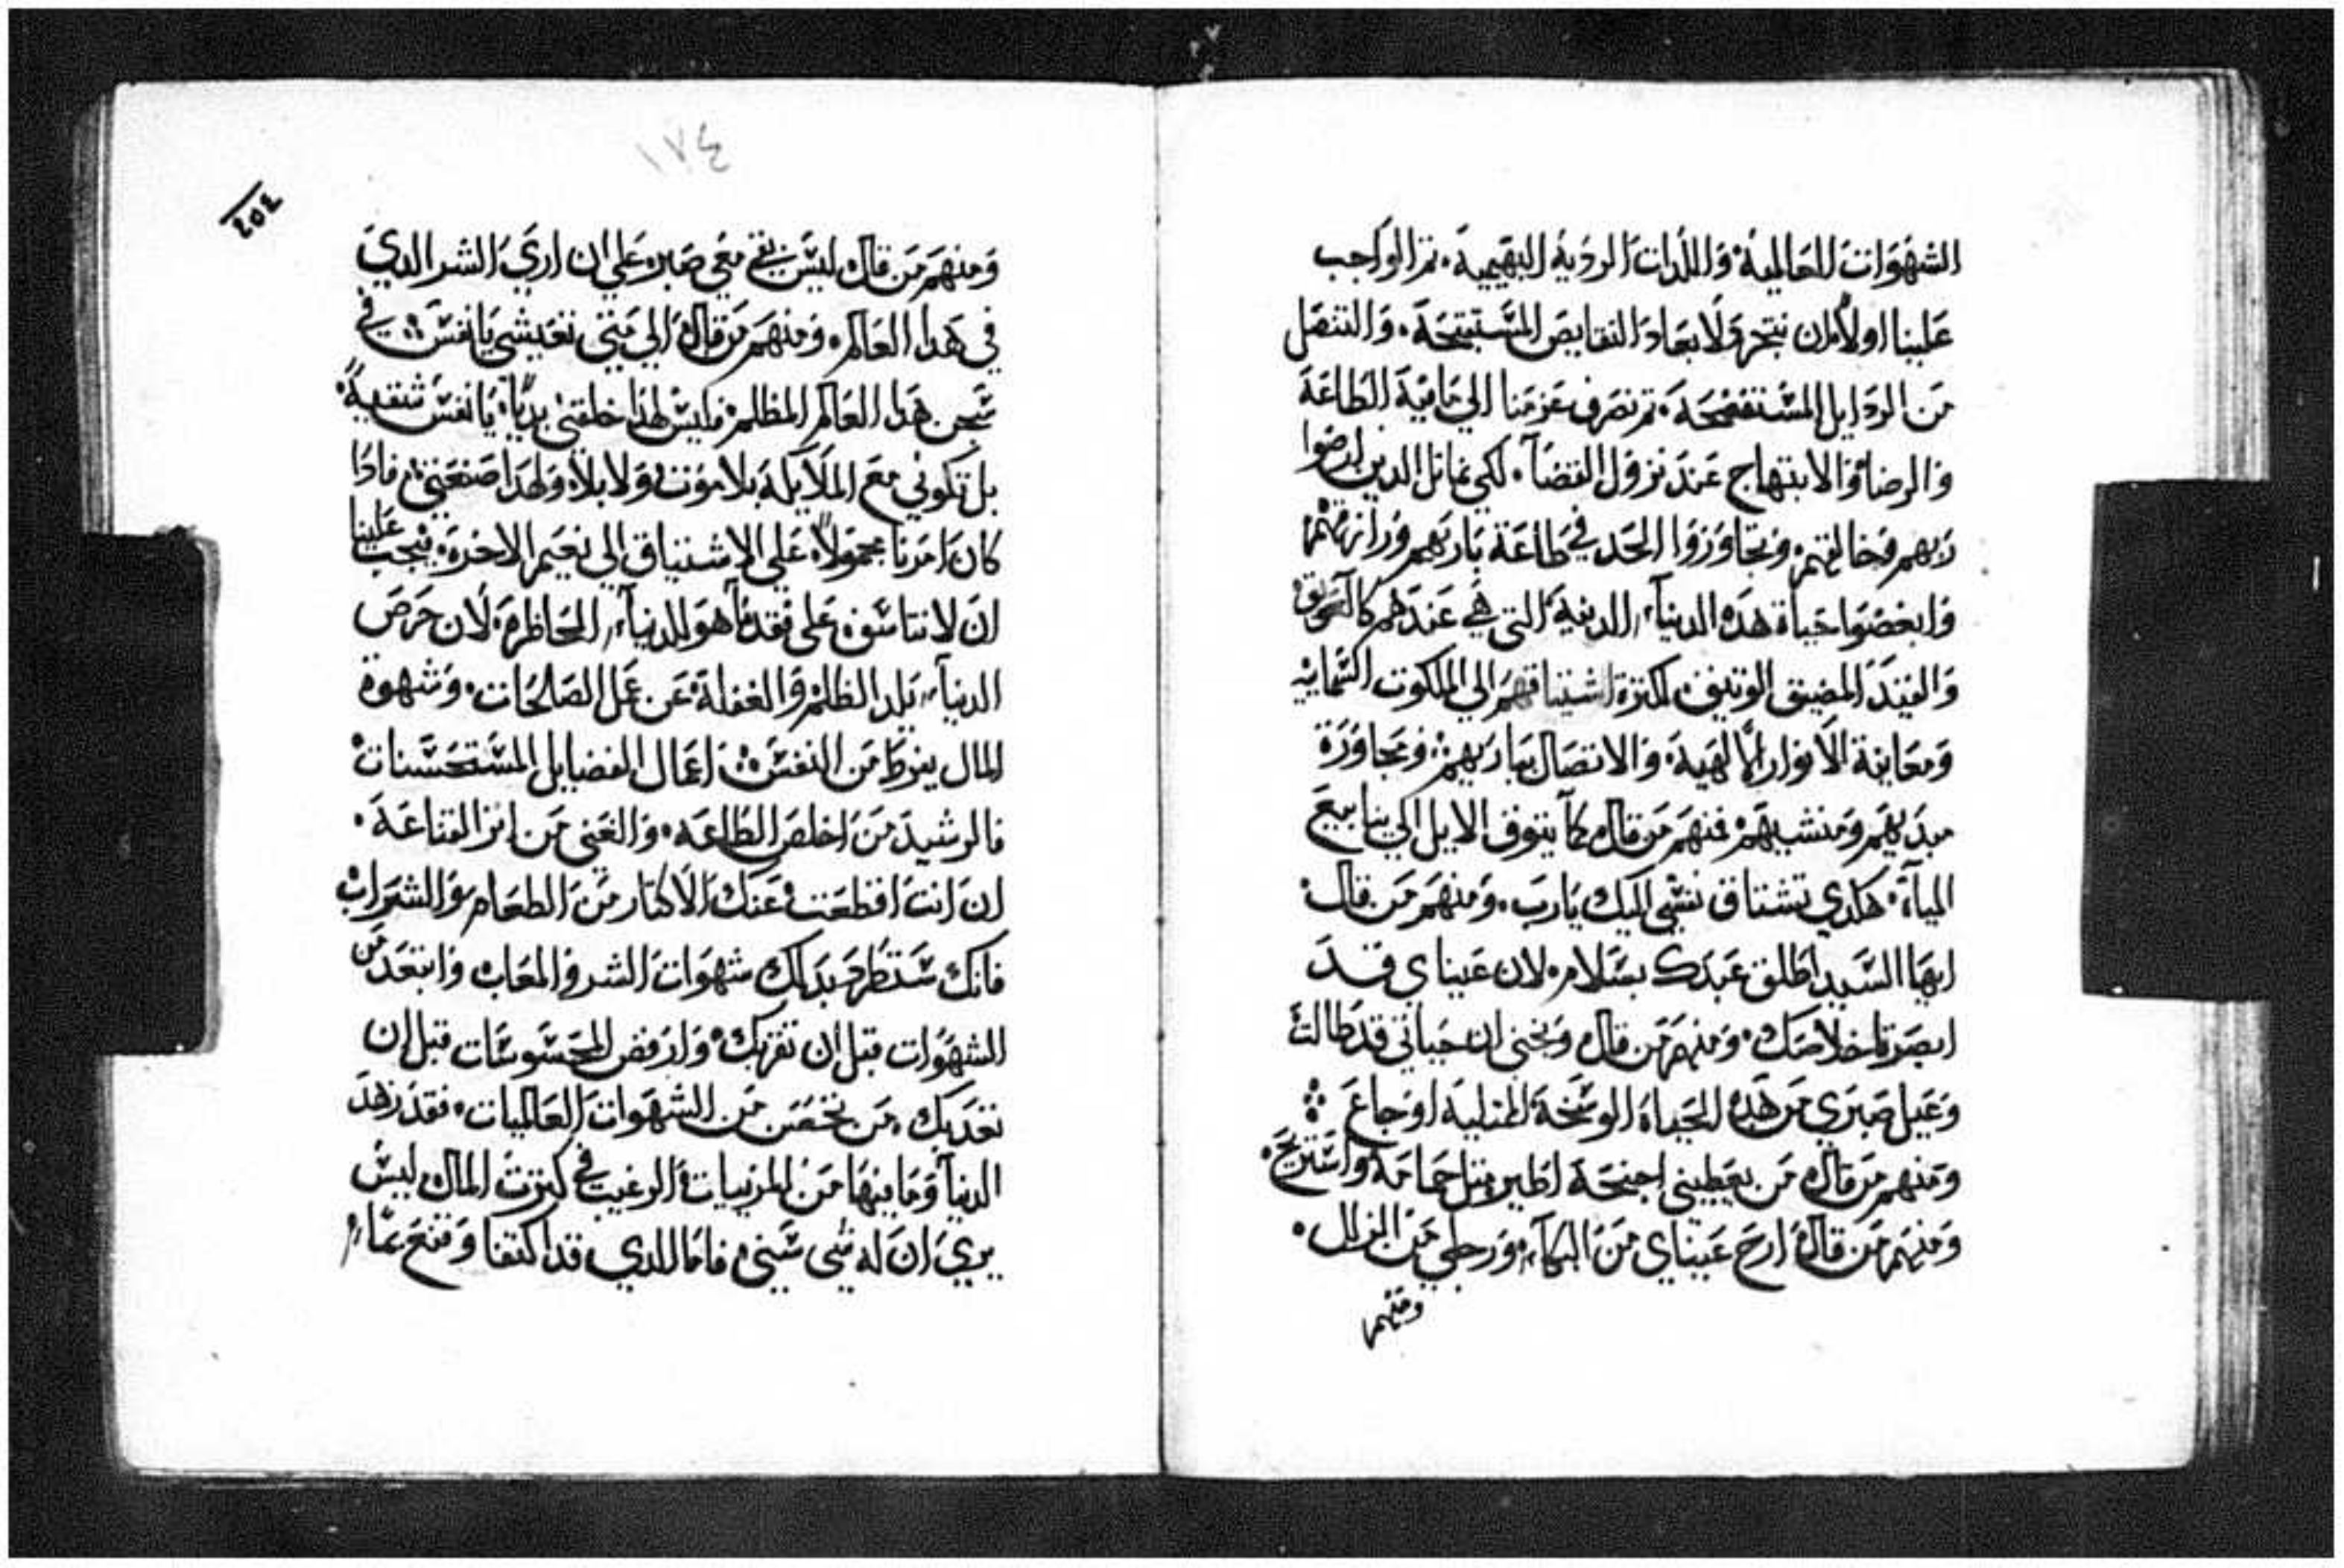 الشهوات العالمية. واللدات الردية البهيمية. تم الواجب
علينا اولاً ان نتحرر لابعاد النقايص المستبتحة. والتنصل
من الردايل المستقبحة. تم نصرف عزمنا الي ماهية الطاعة
والرضا والابتهاج عند نزول القضآ. لكي نماتل الدين ارضوا
ربهم وخالقهم. وتجاوزوا الحد في طاعة باريهم ورازقهم
وابغضوا حياة هده الدنيآ الدنية التي هي عندهم كالعوايق
والقيد المضيق الوتيق. لكترة اشتياقهم الي الملكوت السمايه
ومعاينة الانوار الالهية. والاتصال بباريهم. ومجاورة
مبديهم ومنشيهم فمنهم من قال. كما يتوق الايل الي ينابيع
المياة. هكدي تشتاق نفسي اليك يارب. ومنهم من قال.
ايها السيد اطلق عبدك بسلام. لان عيناي قد
ابصرتا خلاصك. ومنهم من قال ويحي ان حياتي قد طالت
وعيل صبري من هده الحياة الوسخة المتلية اوجاع
ومنهم من قال. من يعطيني اجنحة اطير متل حمامة واستريح.
ومنهم من قال. ارح عيناي من البكآ. ورجلي من الزلل.
ومنهم
١٧٤
٢٥٤
ومنهم من قال. ليس بقي معي صبر علي ان اري الشر الدي
في هدا العالم. ومنهم من قال الي متي تعيشي يا نفس في
سجن هدا العالم المظلم. فليس لهدا خلقتي بديا. يا نفس شقية.
بل تكوني مع الملايكة بلا موت ولا بلا. ولهدا صنعتي. فادا
كان امرنا مجمولا علي الاشتياق الي نعيم الاخرة. فيجب علينا
ان لا نتاسف علي فقد ما هو للدنيآ الحاظرة. لان حرص
الدنيآ يلد الظلم والغفلة عن عمل الصالحات. وشهوة
المال يفرط من النفس اعمال الفضايل المستحسنات
فالرشيد من اخلص الطاعة. والغني من اتر القناعة.
ان انت اقطعت عنك الاكتار من الطعام والشراب
فانك ستطرح بدلك شهوات الشر والمعاب وابتعد من
الشهوات قبل ان تقربك. وارفض المحسوسات قبل ان
تعديك. من تحصن من الشهوات العالميات. فقد زهد
الدنيآ وما فيها من المرييات. الرغيب في كترت المال ليس
يري ان له شي شيئ. فاما الدي قد اكتفا وقنع بما